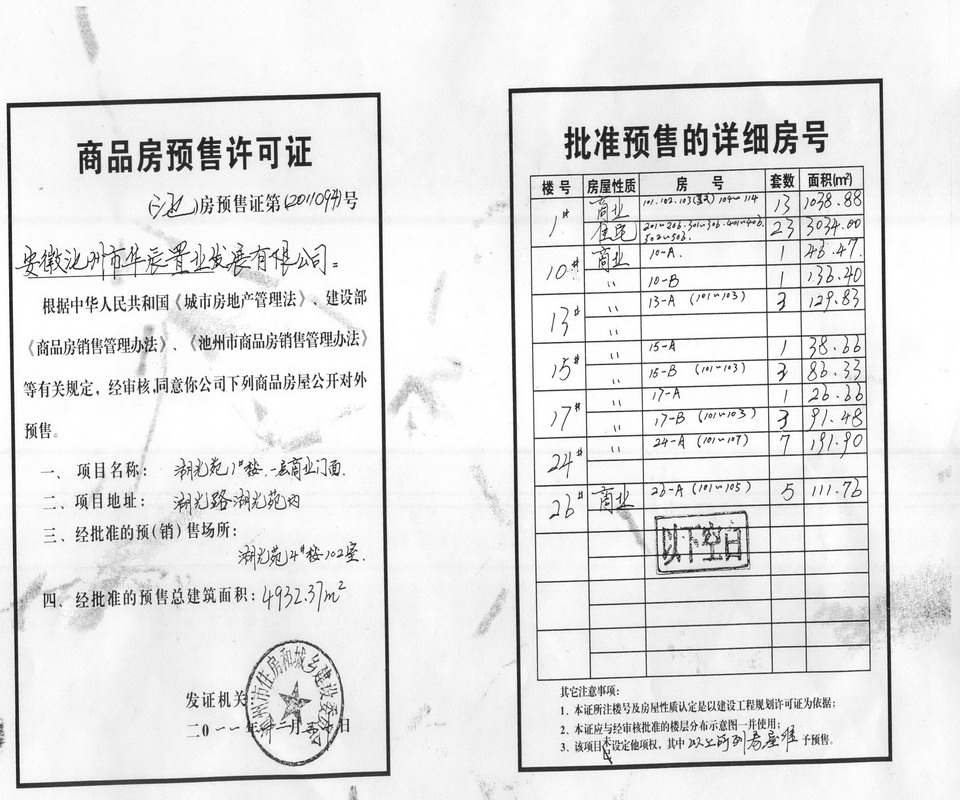 商品房预售许可证
(池)房预售证第(2011094)号
安徽池州市华辰置业发展有限公司:
根据中华人民共和国《城市房地产管理法》、建设部
《商品房销售管理办法》、《池州市商品房销售管理办法》
等有关规定,经审核,同意你公司下列商品房屋公开对外
预售。
一、项目名称: 湖光苑1#楼、一层商业门面.
二、项目地址: 湖光路湖光苑内
三、经批准的预(销)售场所:
湖光苑14#楼102室.
四、经批准的预售总建筑面积:4932.37m²
发证机关
州市住房和城乡建设委员会
二0一一年十二月 日
批准预售的详细房号
楼号 房屋性质 房号 套数 面积(m²)
1# 商业 101.102.103 104~114 13 1038.88
住宅 201~206.301~306.401~406. 502~506. 23 3034.00
10# 商业 10-A. 1 46.47.
〃 10-B 1 136.40
13# 〃 13-A (101~103) 3 129.83
〃
15# 〃 15-A 1 38.66
〃 15-B (101~103) 3 86.33
17# 〃 17-A 1 26.66
〃 17-B (101~103) 3 91.48
24# 〃 24-A (101~107) 7 191.90
26# 商业 26-A (101~105) 5 111.76
以下空白
其它注意事项:
1、本证所注楼号及房屋性质认定是以建设工程规划许可证为依据;
2、本证应与经审核批准的楼层分布示意图一并使用;
3、该项目未设定他项权,其中以上所列房屋准予预售。